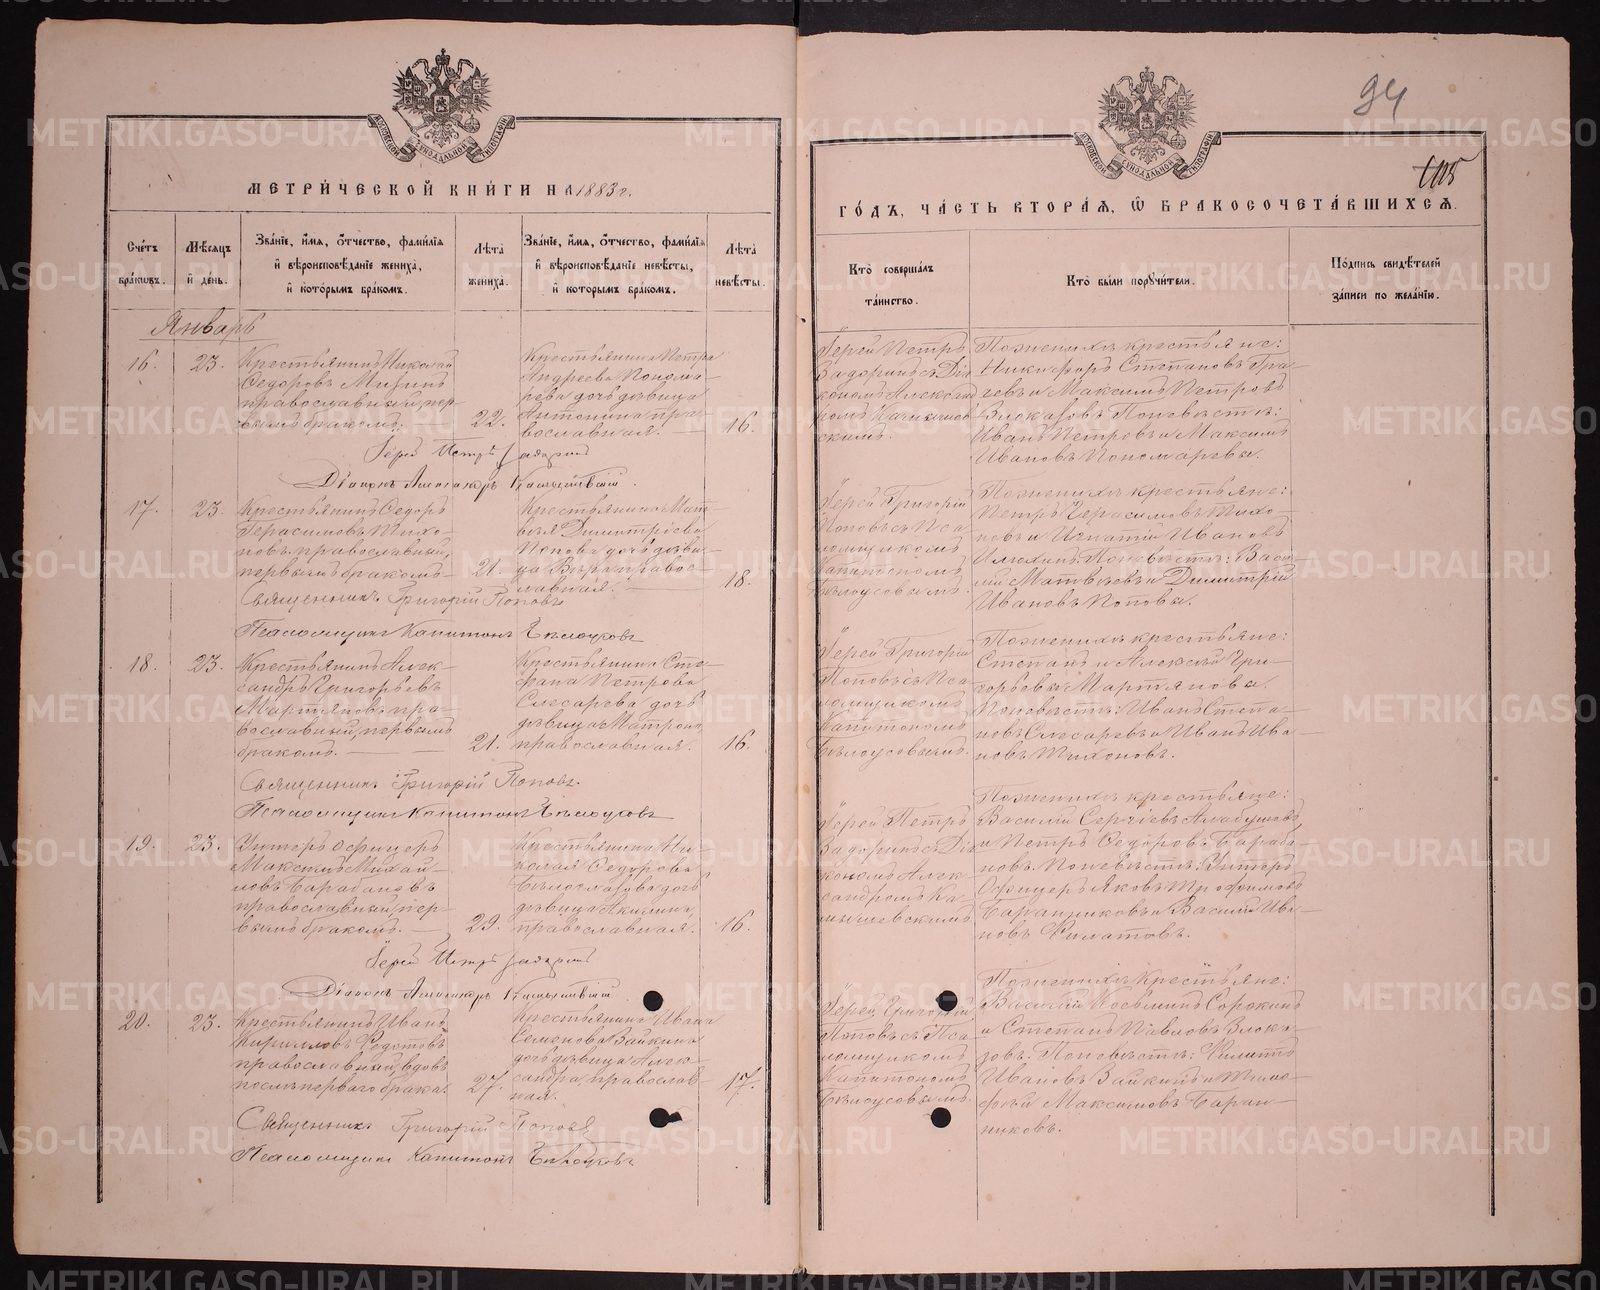 МЕТРИ́ЧЕСКОЙ КНИ́ГИ НА 1883 г.
Сче́тъ бра́ковъ.
Мѣ́сяцъ и҆ де́нь.
Зва́нїе, и҆́мя, ѻ҆́тчество, фами́лїя и҆ вѣроисповѣ́данїе жениха̀, и҆ кото́рымъ бра́комъ.
Лѣ́та жениха̀.
Зва́нїе, и҆́мя, ѻ҆́тчество, фами́лїя и҆ вѣроисповѣ́данїе невѣ́сты, и҆ кото́рымъ бра́комъ.
Лѣ́та невѣ́сты.
Январь
16. 23.
Крестьянинъ Николай
Ѳедоровъ Мизинъ
православный, пер-
вымъ бракомъ.
22.
Крестьянина Петра
Андреева Понома-
рева дочь дѣвица
Антонина пра-
вославная.
16.
Іерей Петръ Задоринъ
Діаконъ Александръ
17. 23.
Крестьянинъ Ѳедоръ
Герасимовъ Тихо-
новъ православный,
первымъ бракомъ
21.
Крестьянина Мат-
вѣя Димитріева
Попова дочь дѣви-
ца Вѣра правос-
лавная.
18.
Священникъ Григорій Поповъ
Псаломщикъ Капитонъ Бѣлоусовъ
18. 23.
Крестьянинъ Алек-
сандръ Григорьевъ
Мартяновъ пра-
вославный, первымъ
бракомъ.
21.
Крестьянина Сте-
фана Петрова
Слесарева дочь
дѣвица Матрона,
православная.
16.
Священникъ Григорій Поповъ.
Псаломщикъ Капитонъ Бѣлоусовъ
19. 23.
Унтеръ Офицеръ
Максимъ Михай-
ловъ Барабановъ
православный, пер-
вымъ бракомъ.
29.
Крестьянина Ни-
колая Ѳедорова
Бѣлоглазова дочь
дѣвица Акилина,
православная.
16.
Іерей Петръ Задоринъ
Діаконъ Александръ
20. 23.
Крестьянинъ Иванъ
Кирилловъ
православный, вдовъ
послѣ перваго брака.
27.
Крестьянина Ивана
Семенова Вайкина
дочь дѣвица Алек-
сандра, православ-
ная.
17.
Священникъ Григорій Поповъ
Псаломщикъ Капитонъ Бѣлоусовъ
94
ГО́ДЪ, ЧА́СТЬ ВТОРА́Я, Ѽ БРАКОСОЧЕТА́ВШИХСЯ.
Кто̀ соверша́лъ та́инство.
Кто̀ бы́ли порꙋчи́тели.
По́дпись свидѣ́телей за́писи по жела́нїю.
Іерей Петръ
Задоринъ съ Діа
кономъ Алексан
дромъ
По женихѣ крестьяне:
Никифоръ Степановъ Гра-
чевъ и Максимъ Петровъ
Злоказовъ. По невѣстѣ:
Иванъ Петровъ и Максимъ
Ивановъ Пономаревы.
Іерей Григорій
Поповъ съ Пса
ломщикомъ
Капитономъ
Бѣлоусовымъ.
По женихѣ крестьяне:
Петръ Герасимовъ Тихо-
новъ и Игнатій Ивановъ
Илюхинъ. По невѣстѣ: Васи
лій Матвѣевъ и Димитрій
Ивановъ Поповы.
Іерей Григорій
Поповъ съ Пса
ломщикомъ
Капитономъ
Бѣлоусовымъ.
По женихѣ крестьяне:
Степанъ и Алексѣй Гри-
горьевы Мартяновы.
По невѣстѣ: Иванъ Степа-
новъ Слесаревъ и Иванъ Ива-
новъ Тихоновъ.
Іерей Петръ
Задоринъ съ Діа
кономъ Алек-
сандромъ Ка-
мышевскимъ
По женихѣ крестьяне:
Василій Сергѣевъ Алабушевъ
и Петръ Ѳедоровъ Бараба-
новъ. По невѣстѣ: Унтеръ
Офицеръ Яковъ Трофимовъ
Баранниковъ и Василій Ива-
новъ Филатовъ.
Іерей Григорій
Поповъ съ Пса-
ломщикомъ
Капитономъ
Бѣлоусовымъ.
По женихѣ Крестьяне:
Василій Косьминъ Сорокинъ
и Степанъ Павловъ Злока-
зовъ. По невѣстѣ: Филиппъ
Ивановъ Вайкинъ и Тимо-
фей Максимовъ Баран-
никовъ.
METRIKI.GASO-URAL.RU